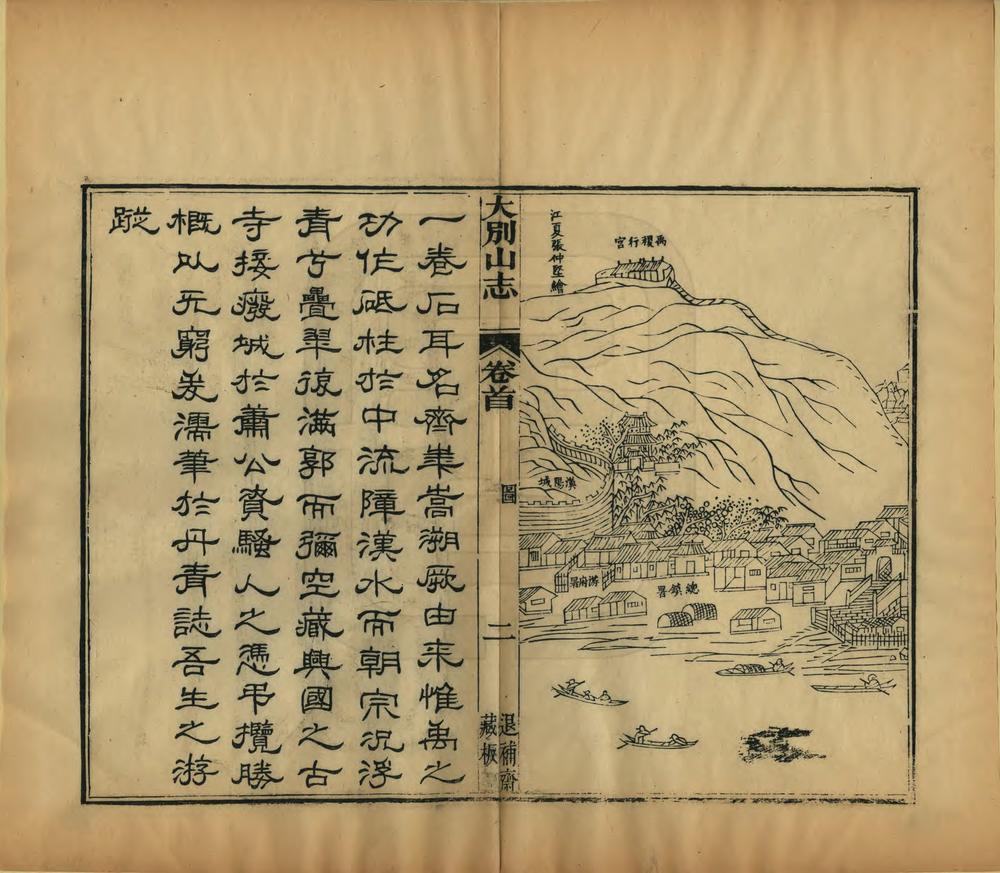 江夏張仲繪
禹稷行宮
漢陽城
游府署
總鎮署
大別山志
卷首
圖
二
退補齋
藏板
一卷石耳名齊華嵩溯厥由來惟禹之
功作砥柱於中流障漢水而朝宗況浮
青兮疊翠復滿郭而彌空藏興國之古
寺接廢城於蕭公資騷人之憑弔攬勝
概以无窮爰濡筆於丹青誌吾生之游
蹤